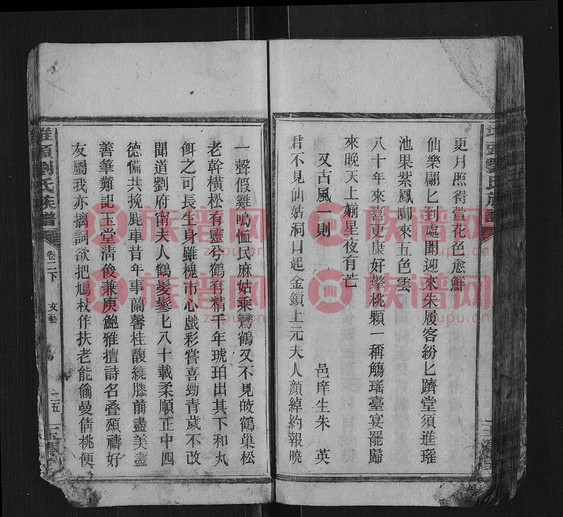 更月照得當花色愈鮮
仙樂颺匕到處聞迎來朱履客紛匕躋堂須進瑤
池果紫鳳卿來五色雲
八十年來喜更康好擎桃顆一稱觴瑤臺宴罷歸
來晚天上嫦星夜有芒
又古風一則
邑庠生朱英
君不見仙姑洞口起金鎖上元夫人顏綽約報曉
一聲假雞鳴
氏麻姑乘鸞鶴又不見皎鶴巢松
老幹橫松有靈兮鶴有精千年琥珀出其下和丸
餌之可長生身雖槐市心戲彩當喜勁青歲不改
聞道劉府南夫人鶴髮鬖匕八十載柔順正中四
德備共挽鹿車昔年事蘭馨桂馥繞膝前盡美盡
善筆難記玉堂清俊兼庾鮑雅擅詩名香頌禱好
友屬我亦摛詞欲把鳩杖作扶老能偷曼倩桃便
堆頭劉氏族譜
卷二下
文藝
二五
族譜网
zupu.cn